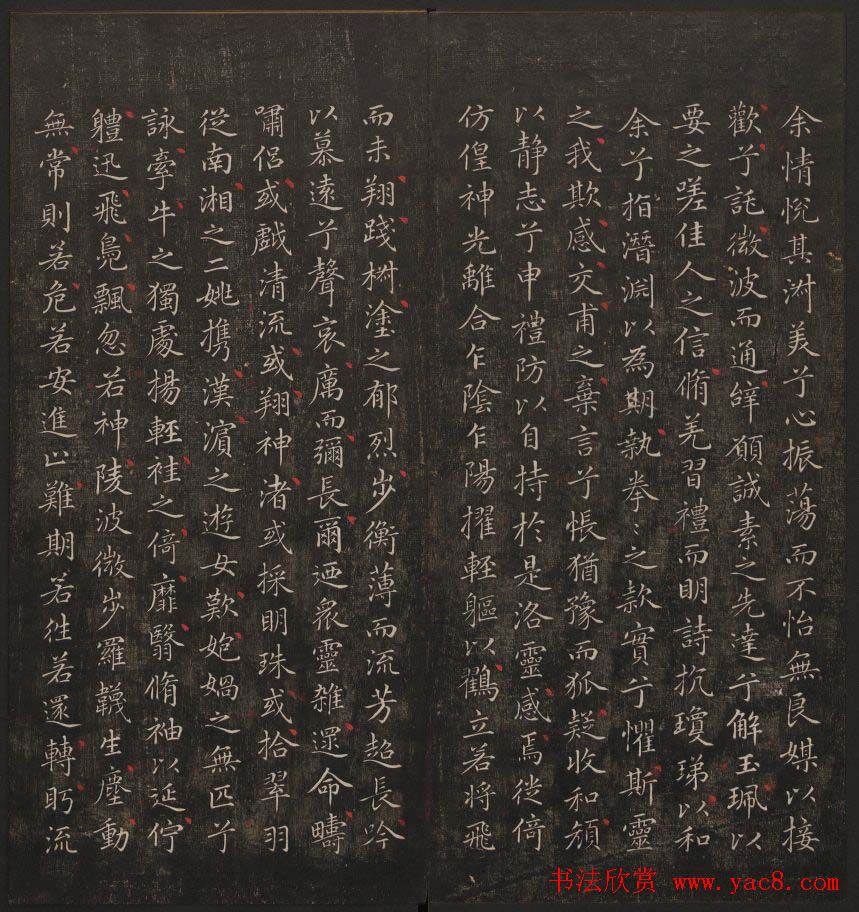 余情悅其淑美兮心振蕩而不怡無良媒以接
歡兮託微波而通辭願誠素之先達兮解玉珮以
要之嗟佳人之信脩羌習禮而明詩抗瓊珶以和
余兮指潛淵以為期執拳〻之款實兮懼斯靈
之我欺感交甫之棄言兮悵猶豫而狐疑收和顏
以静志兮申禮防以自持於是洛靈感焉徙倚
仿偟神光離合乍陰乍陽擢輕軀以鶴立若將飛
而未翔踐椒塗之郁烈步衡薄而流芳超長吟
以慕遠兮聲哀厲而彌長爾迺衆靈雜遝命疇
嘯侶或戲清流或翔神渚或採明珠或拾翠羽
從南湘之二姚携漢濱之遊女歎匏媧之無匹兮
詠牽牛之獨處揚輕袿之倚靡翳脩袖以延佇
軆迅飛鳧飄忽若神陵波微步羅韈生塵動
無常則若危若安進止難期若往若還轉眄流
书法欣赏 www.yac8.com